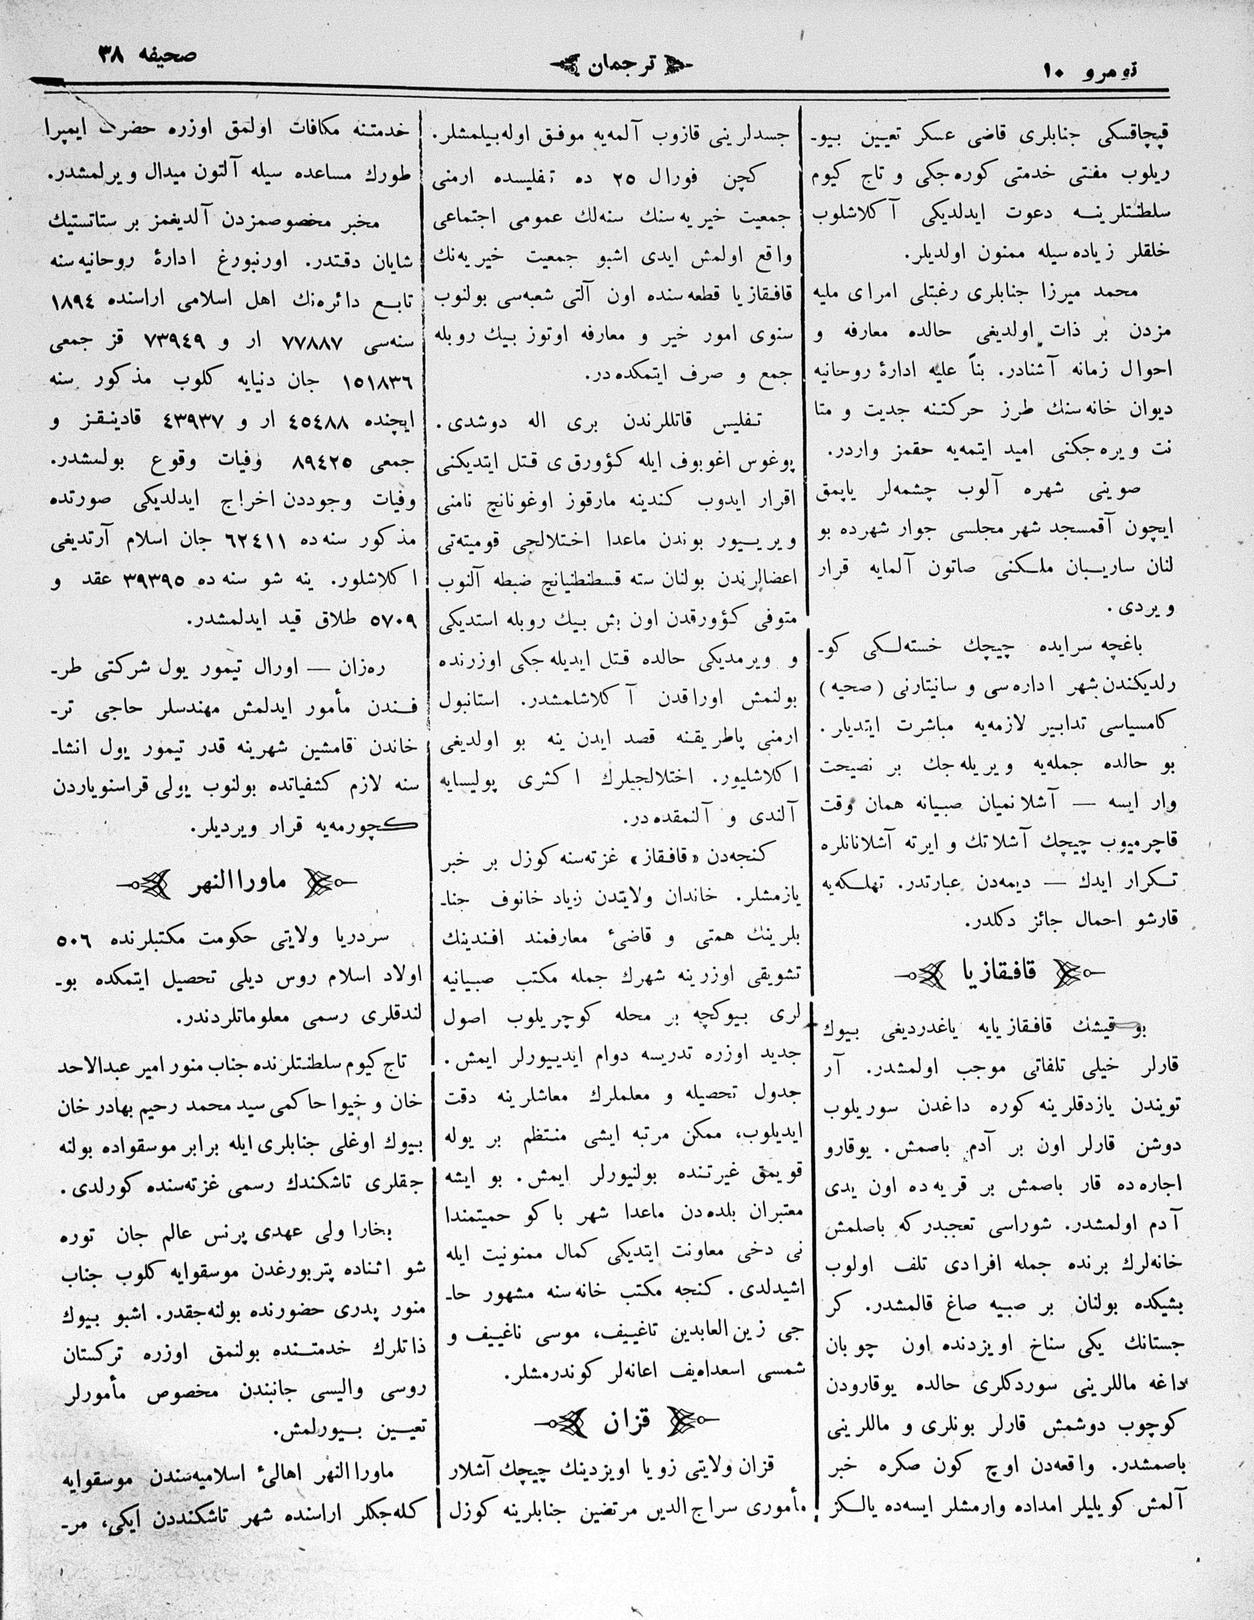 نومرو ١٠
ترجمان
صحیفه ٣٨
قپچاقسكی جنابلری قاضی عسكر تعیین بیو-
ریلوب مفتی خدمتی كوره‌جكی و تاج كیوم
سلطنتلرینه دعوت ایدلدیكی آكلاشلوب
خلقلر زیاده‌سیله ممنون اولدیلر.
محمد میرزا جنابلری رغبتلی امرای ملیه
مزدن بر ذات اولدیغی حالده معارفه و
احوال زمانه آشنادر. بناً علیه ادارۀ روحانیه
دیوان خانه‌سنك طرز حركتنه جدیت و متا
نت ویره‌جكنی امید ایتمه‌یه حقمز واردر.
صوینی شهره آلوب چشمه‌لر یاپمق
ایچون آقمسجد شهر مجلسی جوار شهرده بو
لنان ساریبان ملكنی صاتون آلمایه قرار
ویردی.
باغچه سرایده چیچك خسته‌لكی كو-
رلدیكندن شهر اداره‌سی و سانیتارنی (صحیه)
كامسیاسی تدابیر لازمه‌یه مباشرت ایتدیلر.
بو حالده جمله‌یه ویریله‌جك بر نصیحت
وار ایسه — آشلانمیان صبیانه همان وقت
قاچرمیوب چیچك آشلاتك و ایرته آشلانانلره
تكرار ایدك — دیمه‌دن عبارتدر. تهلكه‌یه
قارشو احمال جائز دكلدر.
قافقازیا
بو قیشك قافقازیایه یاغدردیغی بیوك
قارلر خیلی تلفاتی موجب اولمشدر. آر
تویندن یازدقلرینه كوره داغدن سوریلوب
دوشن قارلر اون بر آدم باصمش. یوقارو
اجاره‌ده قار باصمش بر قریه‌ده اون یدی
آدم اولمشدر. شوراسی تعجبدركه باصلمش
خانه‌لرك برنده جمله افرادی تلف اولوب
بشیكده بولنان بر صبیه صاغ قالمشدر. كر
جستانك یكی سناخ اویزدنده اون چوبان
داغه ماللرینی سوردكلری حالده یوقارودن
كوچوب دوشمش قارلر بونلری و ماللرینی
باصمشدر. واقعه‌دن اوچ كون صكره خبر
آلمش كویلیلر امداده وارمشلر ایسه‌ده یالكز
جسدلرینی قازوب آلمه‌یه موفق اوله‌بیلمشلر.
كچن فورال ٢٥ ده تفلیسده ارمنی
جمعیت خیریه‌سنك سنه‌لك عمومی اجتماعی
واقع اولمش ایدی اشبو جمعیت خیریه‌نك
قافقازیا قطعه‌سنده اون آلتی شعبه‌سی بولنوب
سنوی امور خیر و معارفه اوتوز بیك روبله
جمع و صرف ایتمكده‌در.
تفلیس قاتللرندن بری اله دوشدی.
پوغوس اغوبوف ایله كؤورقی قتل ایتدیكنی
اقرار ایدوب كندینه مارقوز اوغونانچ نامنی
ویرییور بوندن ماعدا اختلالجی قومیته‌تی
اعضالرندن بولنان سته قسطنطنیانچ ضبطه آلنوب
متوفی كؤورقدن اون بش بیك روبله استدیكی
و ویرمدیكی حالده قتل ایدیله‌جكی اوزرنده
بولنمش اوراقدن آكلاشلمشدر. استانبول
ارمنی پاطریقنه قصد ایدن ینه بو اولدیغی
اكلاشلیور. اختلالجیلرك اكثری پولیسایه
آلندی و آلنمقده‌در.
كنجه‌دن «قافقاز» غزته‌سنه كوزل بر خبر
یازمشلر. خاندان ولایتدن زیاد خانوف جنا-
بلرینك همتی و قاضیٔ معارفمند افندینك
تشویقی اوزرینه شهرك جمله مكتب صبیانیه
لری بیوكچه بر محله كوچریلوب اصول
جدید اوزره تدریسه دوام ایدییورلر ایمش.
جدول تحصیله و معلملرك معاشلرینه دقت
ایدیلوب، ممكن مرتبه ایشی منتظم بر یوله
قویمق غیرتنده بولنیورلر ایمش. بو ایشه
معتبران بلده‌دن ماعدا شهر باكو حمیتمندا
نی دخی معاونت ایتدیكی كمال ممنونیت ایله
اشیدلدی. كنجه مكتب خانه‌سنه مشهور حا-
جی زین العابدین تاغییف، موسی ناغییف و
شمسی اسعداه‌یف اعانه‌لر كوندرمشلر.
قزان
قزان ولایتی زویا اویزدینك چیچك آشلار
مأموری سراج الدین مرتضین جنابلرینه كوزل
خدمتنه مكافات اولمق اوزره حضرت ایمپرا
طورك مساعده سیله آلتون میدال ویرلمشدر.
مخبر مخصوصمزدن آلدیغمز بر ستاتستیك
شایان دقتدر. اورنبورغ ادارۀ روحانیه‌سنه
تابع دائره‌نك اهل اسلامی اراسنده ١٨٩٤
سنه‌سی ٧٧٨٨٧ ار و ٧٣٩٤٩ قز جمعی
١٥١٨٣٦ جان دنیایه كلوب مذكور سنه
ایچنده ٤٥٤٨٨ ار و ٤٣٩٣٧ قادینقز و
جمعی ٨٩٤٢٥ وفیات وقوع بولمشدر.
وفیات وجوددن اخراج ایدلدیكی صورتده
مذكور سنه‌ده ٦٢٤١١ جان اسلام آرتدیغی
اكلاشلور. ینه شو سنه‌ده ٣٩٣٩٥ عقد و
٥٧٠٩ طلاق قید ایدلمشدر.
ره‌زان — اورال تیمور یول شركتی طر-
فندن مأمور ایدلمش مهندسلر حاجی تر-
خاندن قامشین شهرینه قدر تیمور یول انشا-
سنه لازم كشفیاتده بولنوب یولی قراسنویاردن
كچورمه‌یه قرار ویردیلر.
ماورا النهر
سردریا ولایتی حكومت مكتبلرنده ٥٠٦
اولاد اسلام روس دیلی تحصیل ایتمكده بو-
لندقلری رسمی معلوماتلردندر.
تاج كیوم سلطنتلرنده جناب منور امیر عبدالاحد
خان و خیوا حاكمی سید محمد رحیم بهادر خان
بیوك اوغلی جنابلری ایله برابر موسقواده بولنه
جقلری تاشكندك رسمی غزته‌سنده كورلدی.
بخارا ولی عهدی پرنس عالم جان توره
شو اثناده پتربورغدن موسقوایه كلوب جناب
منور پدری حضورنده بولنه‌جقدر. اشبو بیوك
ذاتلرك خدمتنده بولنمق اوزره تركستان
روسی والیسی جانبندن مخصوص مأمورلر
تعیین بیورلمش.
ماورا النهر اهالیٔ اسلامیه‌سندن موسقوایه
كله‌جكلر اراسنده شهر تاشكنددن ایكی، مر-